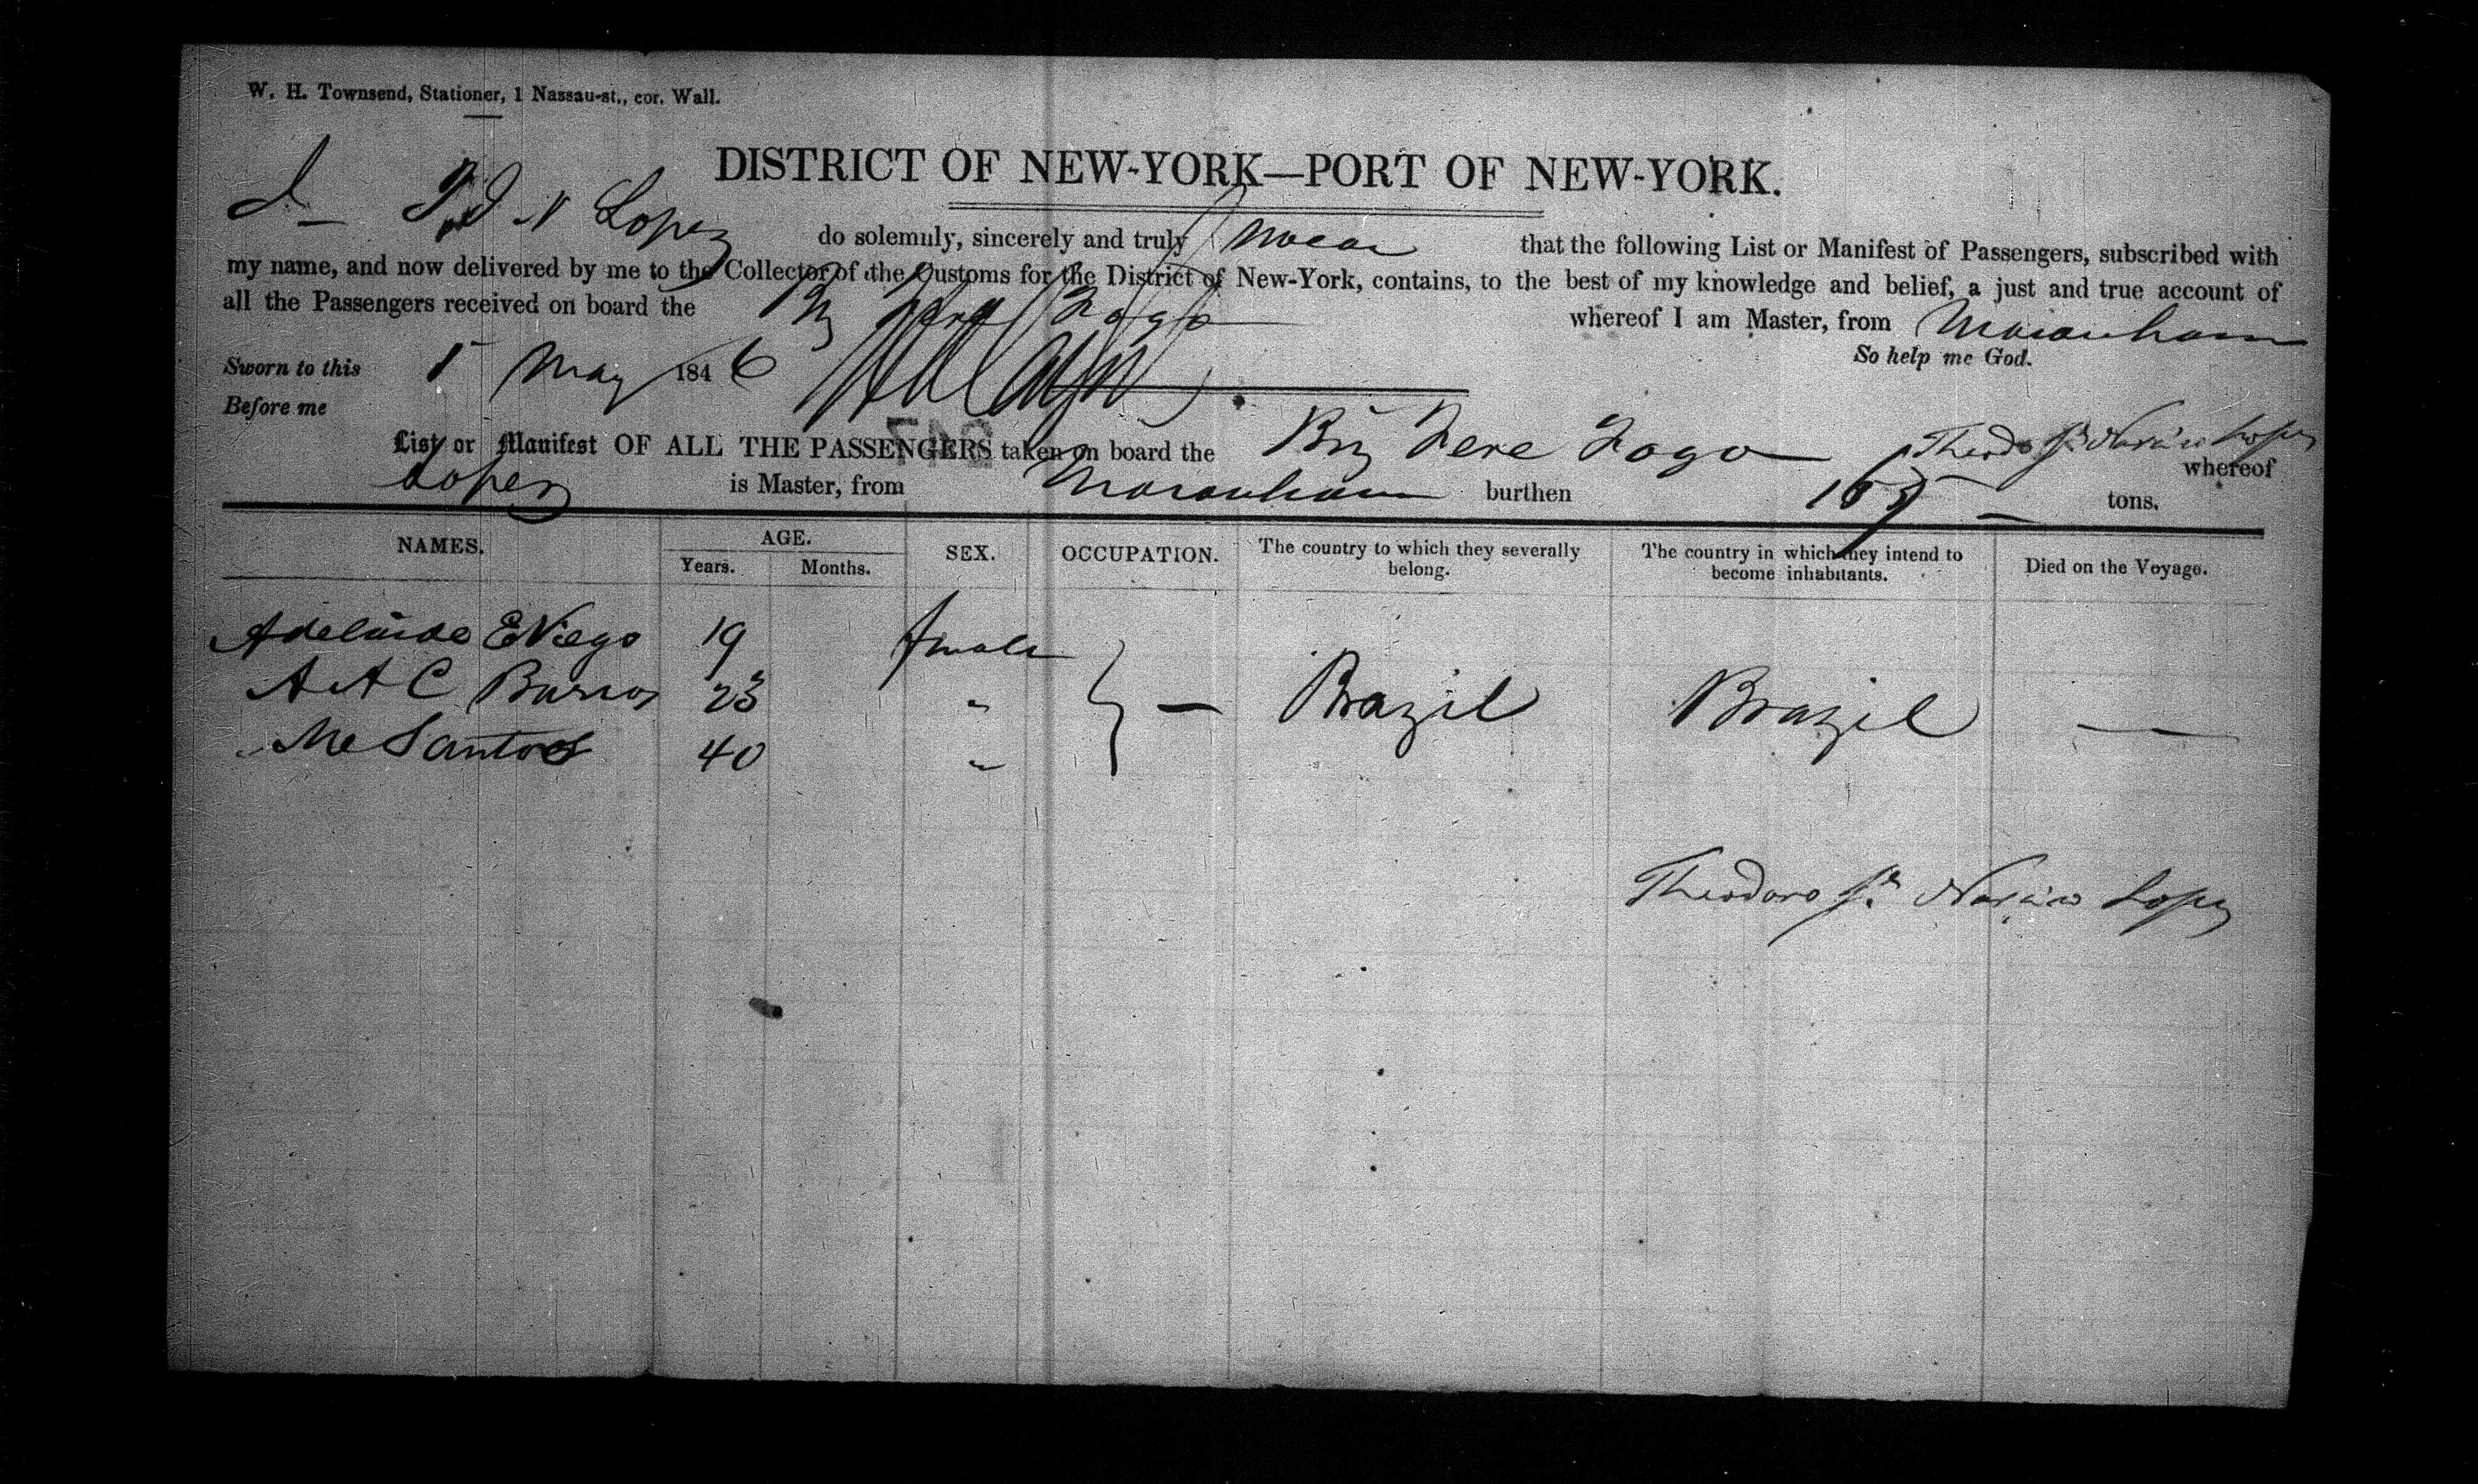 W. H. Townsend, Stationer, 1 Nassau-st., cor. Wall.
DISTRICT OF NEW-YORK—PORT OF NEW-YORK.
I T. J. N Lopez do solemnly, sincerely and truly swear that the following List or Manifest of Passengers, subscribed with
my name, and now delivered by me to the Collector of the Customs for the District of New-York, contains, to the best of my knowledge and belief, a just and true account of
all the Passengers received on board the Brig whereof I am Master, from Maranham
So help me God.
Sworn to this 1 May 1846
Before me
247
List or Manifest OF ALL THE PASSENGERS taken on board the Brig whereof
Lopez is Master, from Maranham burthen tons.
NAMES. AGE. SEX. OCCUPATION. The country to which they severally belong. The country in which they intend to become inhabitants. Died on the Voyage.
Years. Months.
Adelaide E Viego 19 female
A A C Burros 23 " — Brazil Brazil —
Me Santos 40 "
Theodoro Lopez